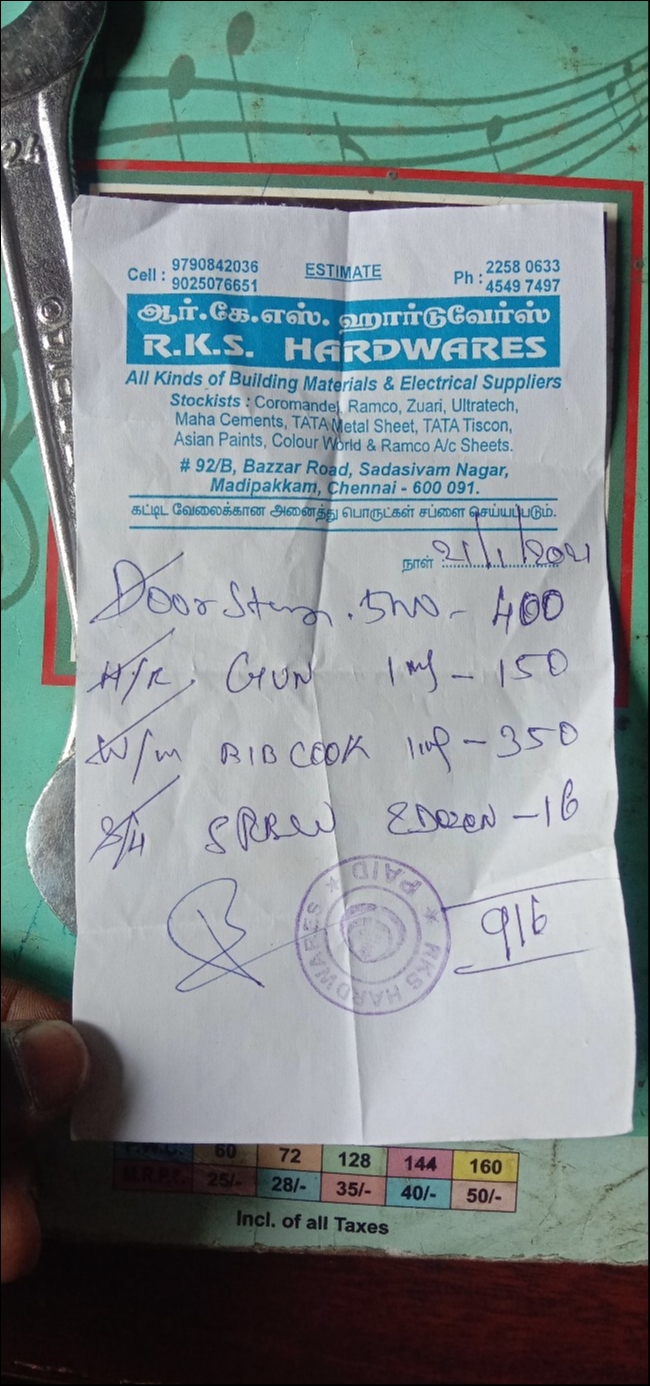 24
Cell : 9790842036
9025076651
ESTIMATE
Ph : 2258 0633
4549 7497
ஆர்.கே.எஸ். ஹார்டுவேர்ஸ்
R.K.S. HARDWARES
All Kinds of Building Materials & Electrical Suppliers
Stockists : Coromandel, Ramco, Zuari, Ultratech,
Maha Cements, TATA Metal Sheet, TATA Tiscon,
Asian Paints, Colour World & Ramco A/c Sheets.
# 92/B, Bazzar Road, Sadasivam Nagar,
Madipakkam, Chennai - 600 091.
கட்டிட வேலைக்கான அனைத்து பொருட்கள் சப்ளை செய்யப்படும்.
நாள் 21/1/2021
Door - 400
H/R. GUN - 150
W/m BIB COOK - 350
2 DOZEN - 16
916
RKS HARDWARES ★ PAID ★
60 72 128 144 160
M.R.P.₹. 25/- 28/- 35/- 40/- 50/-
Incl. of all Taxes